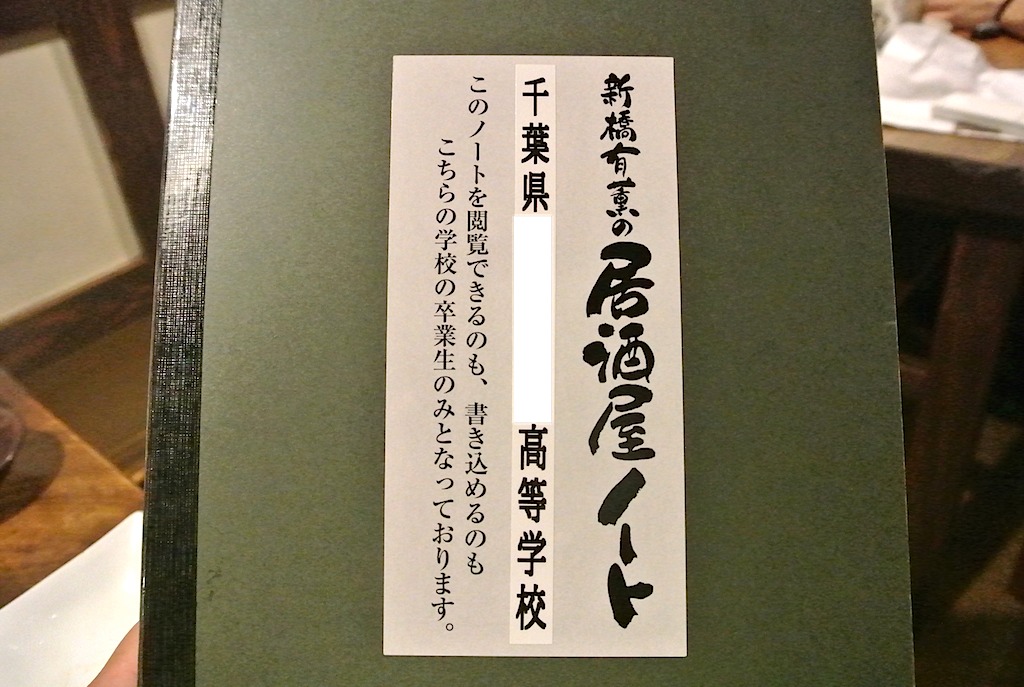 新橋有薫の居酒屋ノート
千葉県 高等学校
このノートを閲覧できるのも、書き込めるのも
こちらの学校の卒業生のみとなっております。